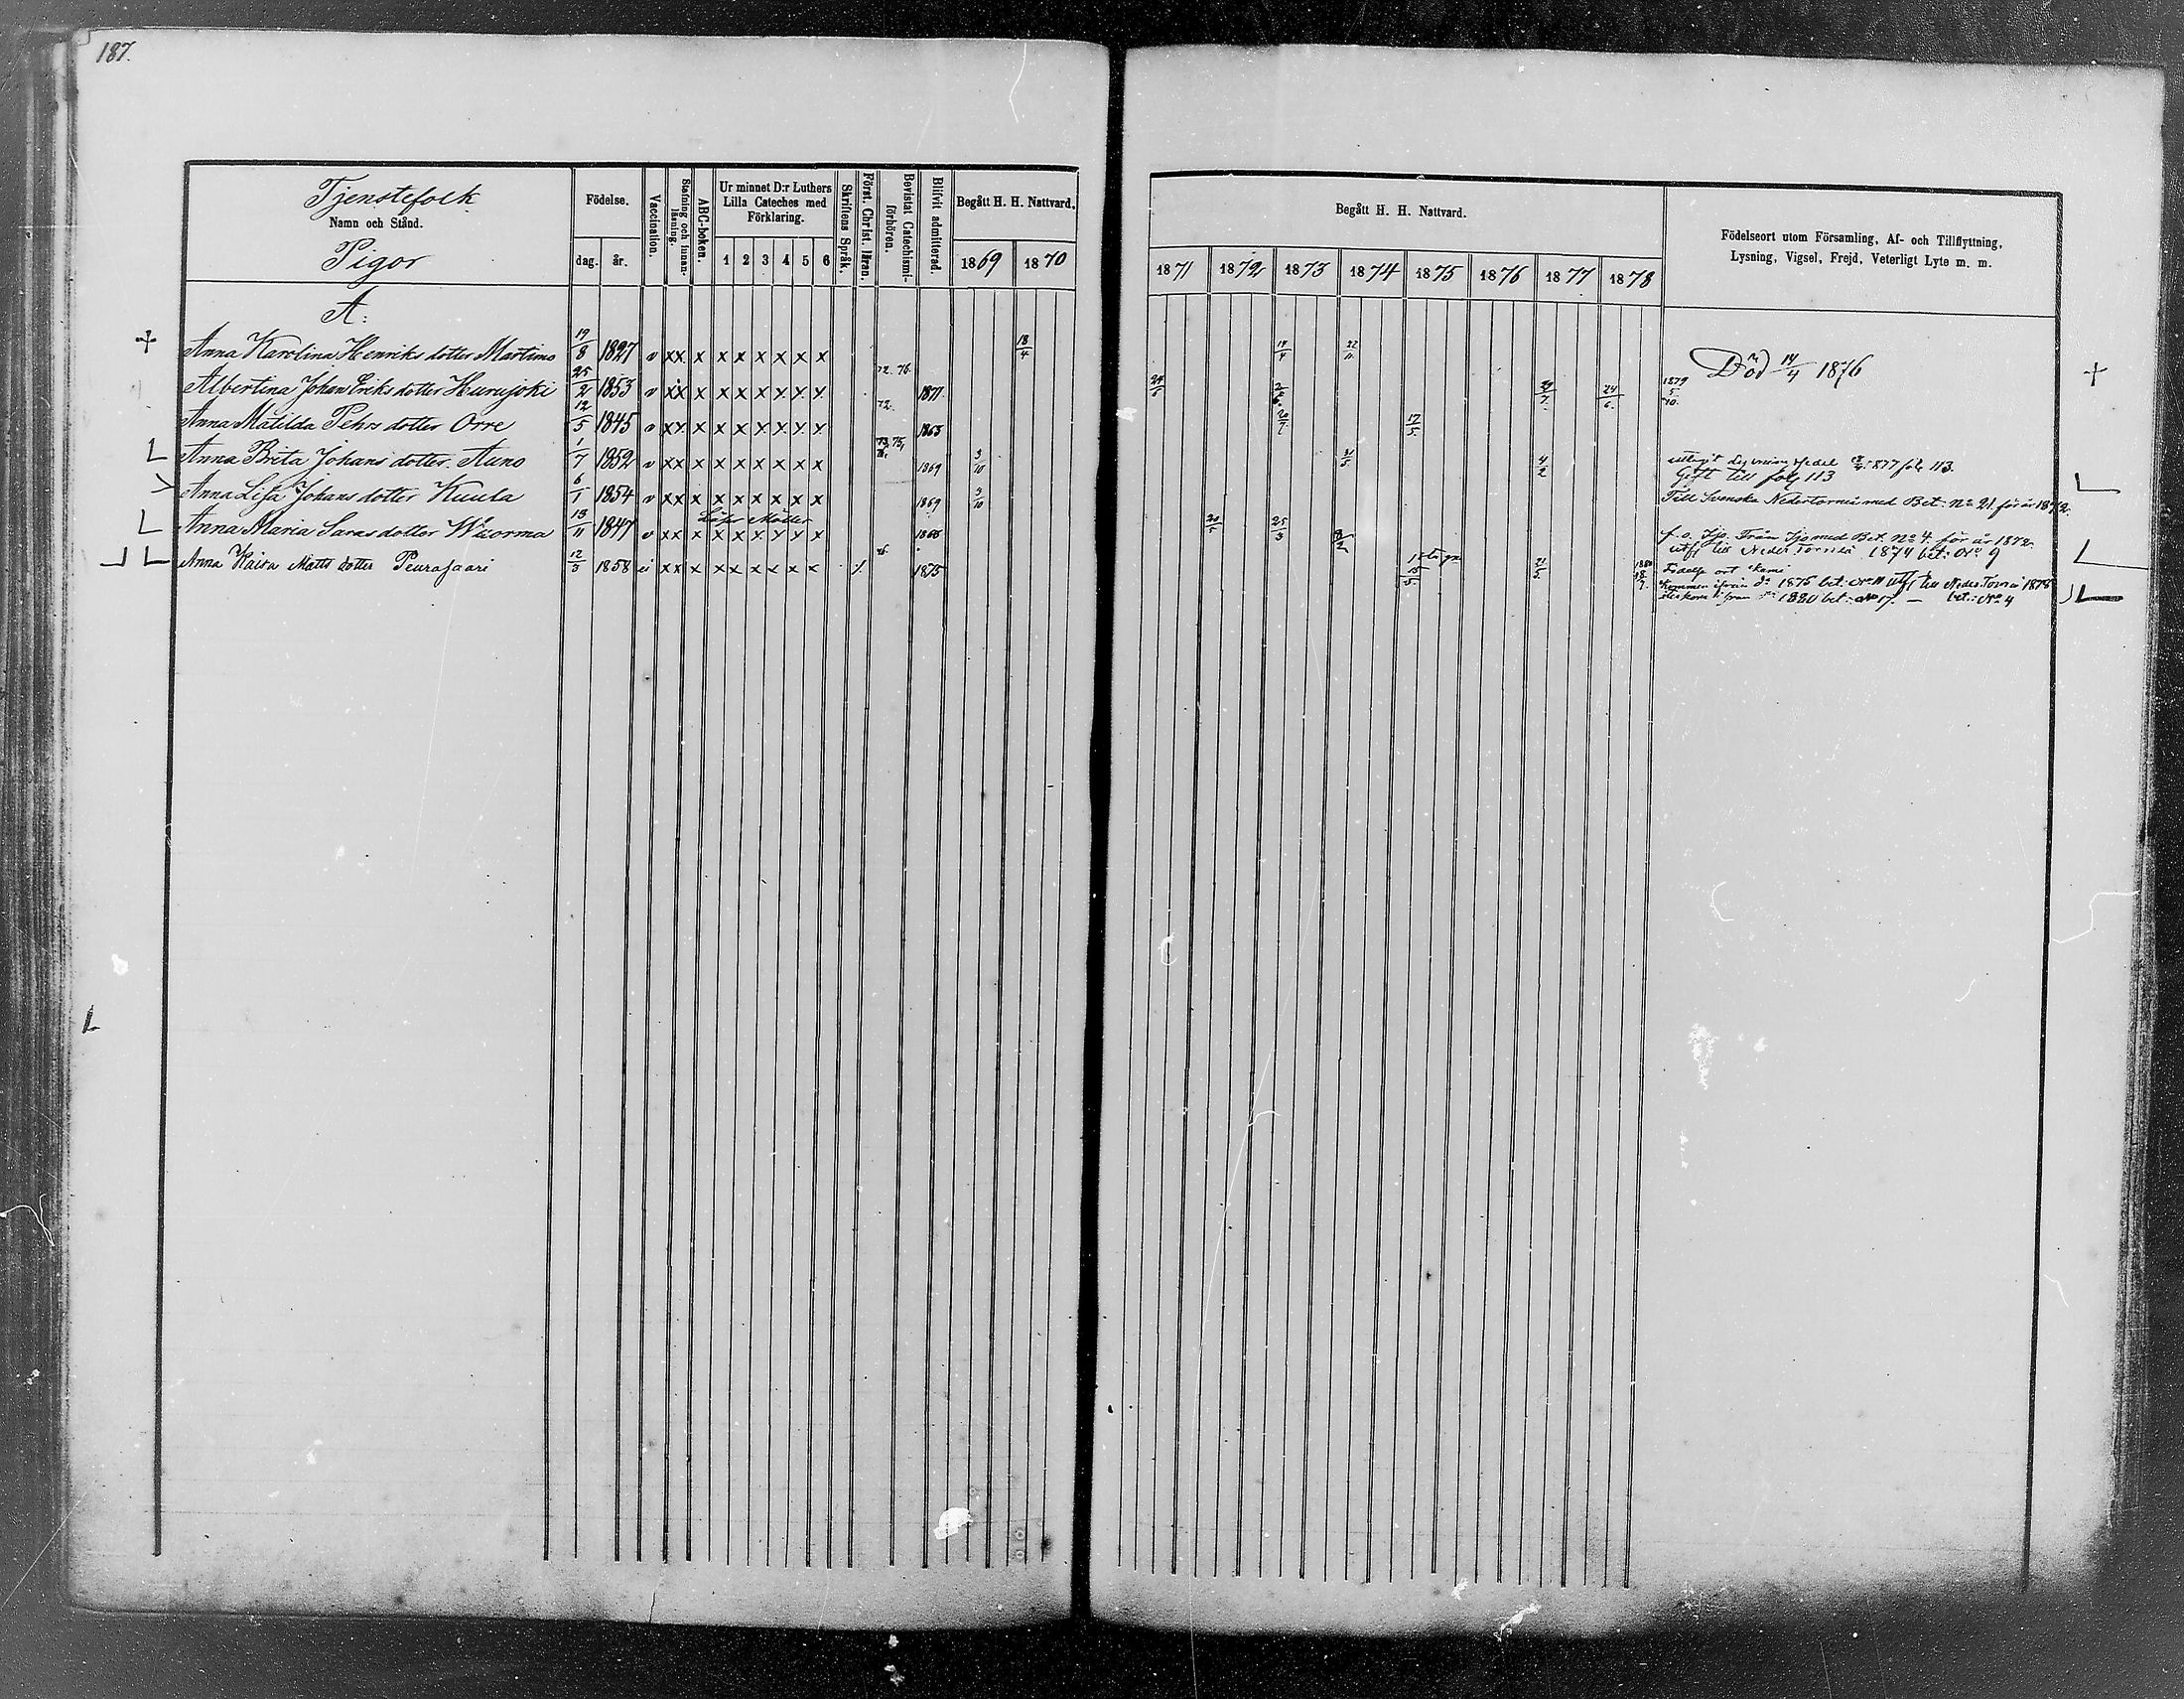 187.
Tjenstefolk
Namn och Stånd.
Pigor
Födelse.
dag. år.
Vaccination.
Stafning och innanläsning.
ABC-boken.
Ur minnet D:r Luthers
Lilla Cateches med
Förklaring.
1 2 3 4 5 6
Skriftens Språk.
Först. Christ. läran.
Bevistat Catechismi-
förhören.
Blifvit admitterad.
Begått H. H. Nattvard.
1869 1870
Begått H. H. Nattvard.
1871 1872 1873 1874 1875 1876 1877 1878
Födelseort utom Församling, Af- och Tillflyttning,
Lysning, Vigsel, Frejd, Veterligt Lyte m. m.
A:
Anna Karolina Henriks dotter Martimo 19/8 1827 v xx x x x x x x x 18/4 14/4 22/11 Död 14/4 1876
Albertina Johan Eriks dotter Hurujoki 25/2 1853 v xx x x x x x x x 72. 76. 1871. 24/6. 1879
Anna Matilda Pehrs dotter Orre 12/5 1845 v xx x x x x x x x 72. 1863 17/5.
Anna Brita Johans dotter Auno 1/7 1852 v xx x x x x x x x 1869 3/10 31/5 4/2 1877 fol. 113.
Gift till fol. 113
Anna Lisa Johans dotter Kuula 6/1 1854 v xx x x x x x x x 1869 3/10 Till Svenska Nedertorneå med Bet: No 21. för år 1872.
Läser Möller
Anna Maria Saras dotter Wuorma 13/11 1847 v xx x x x x x x x 20/5 25/3 f. o. Från med Bet. No 4. för år 1872.
utfl. till Neder Torneå 1874 bet. No 9
Anna Kaisa Matts dotter Peurasaari 12/3 1858 xx x x x x x x x 1875 Födelse ort Kemi
Kommen ifrån do 1875 bet. No 11 utfl till Neder. Torneå 1878
ifrån 1880 bet. No 17. — bet.: No 4